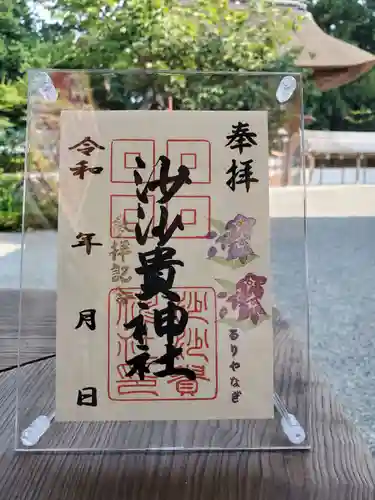 奉拝
沙沙貴神社
参拝記念
令和 年 月 日
るりやなぎ